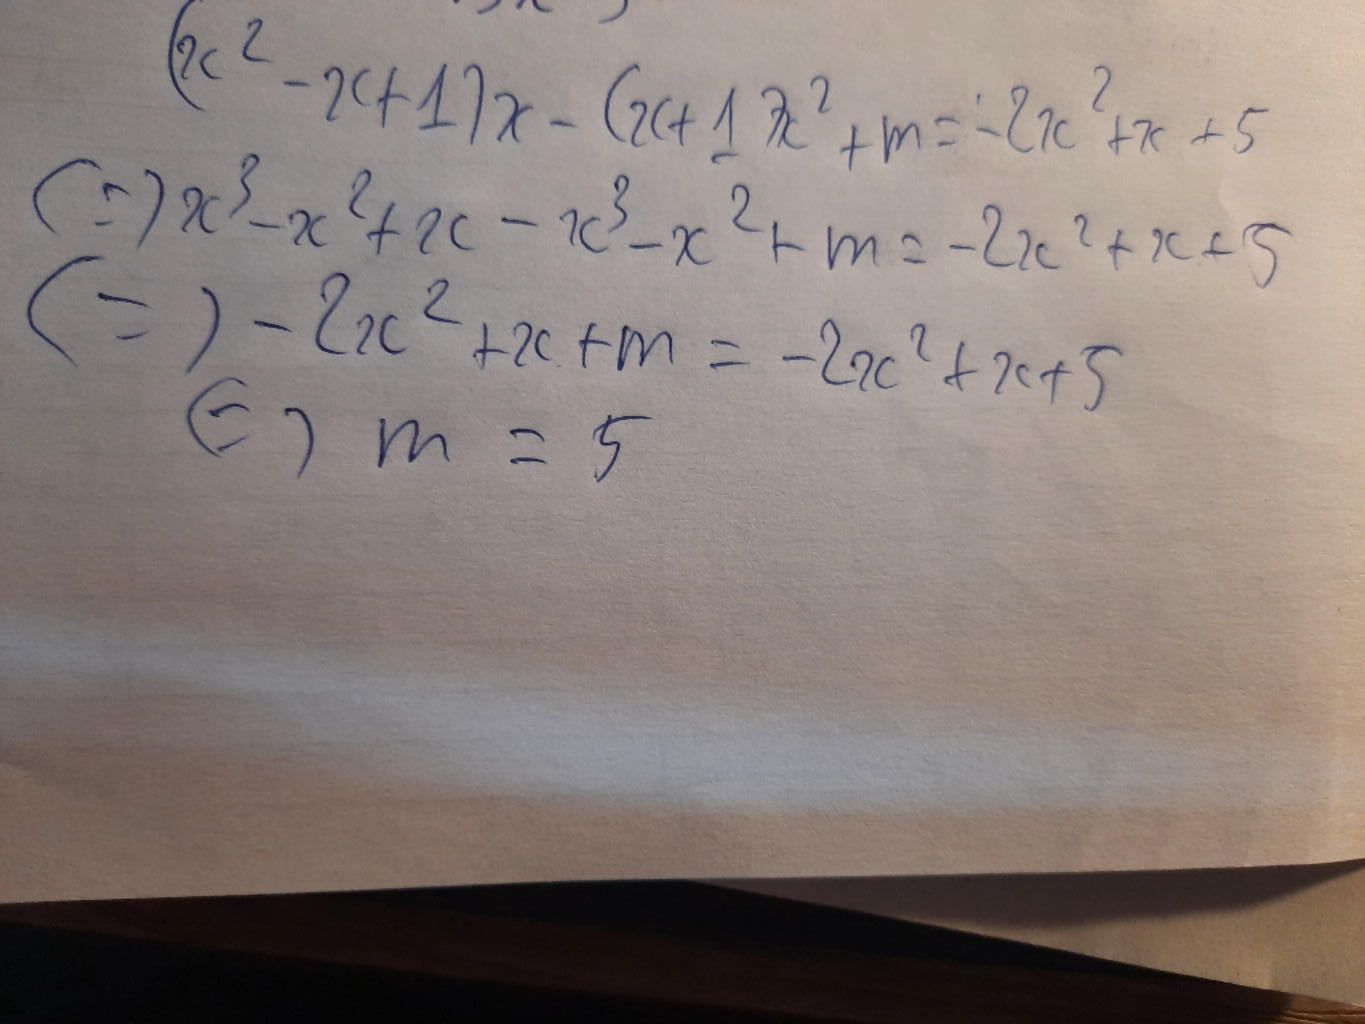 (x² - x + 1)x - (x + 1)x² + m = -2x² + x + 5
(=) x³ - x² + x - x³ - x² + m = -2x² + x + 5
(=) - 2x² + x + m = -2x² + x + 5
(=) m = 5